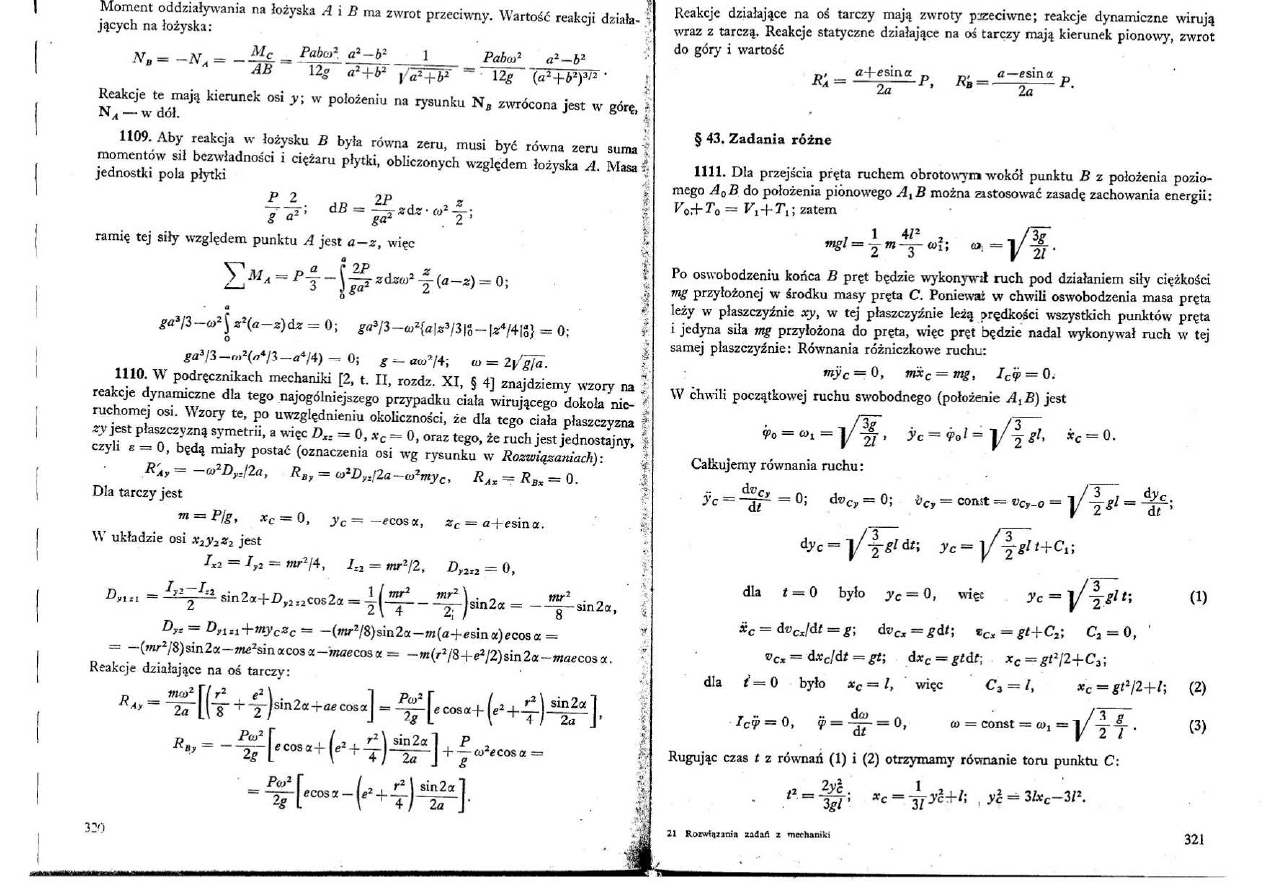 Moment oddziaływania na łożyska A i B ma zwrot przeciwny. Wartość reakcji działa-
jących na łożyska:
N_B = −N_A = − M_C/AB = Pabω²/12g · (a²−b²)/(a²+b²) · 1/√(a²+b²) = Pabω²/12g · (a²−b²)/(a²+b²)^{3/2} .
Reakcje te mają kierunek osi y; w położeniu na rysunku N_B zwrócona jest w górę,
N_A — w dół.
1109. Aby reakcja w łożysku B była równa zeru, musi być równa zeru suma
momentów sił bezwładności i ciężaru płytki, obliczonych względem łożyska A. Masa
jednostki pola płytki
P/g · 2/a² ; dB = 2P/ga² zdz · ω² z/2 ;
ramię tej siły względem punktu A jest a−z, więc
∑M_A = P a/3 − ∫₀ᵃ 2P/ga² zdzω² z/2 (a−z) = 0;
ga³/3−ω²∫₀ᵃ z²(a−z)dz = 0; ga³/3−ω²{a|z³/3|₀ᵃ−|z⁴/4|₀ᵃ} = 0;
ga³/3−ω²(a⁴/3−a⁴/4) = 0; g − aω²/4; ω = 2√g/a.
1110. W podręcznikach mechaniki [2, t. II, rozdz. XI, § 4] znajdziemy wzory na
reakcje dynamiczne dla tego najogólniejszego przypadku ciała wirującego dokoła nie-
ruchomej osi. Wzory te, po uwzględnieniu okoliczności, że dla tego ciała płaszczyzna
zy jest płaszczyzną symetrii, a więc D_xz = 0, x_C = 0, oraz tego, że ruch jest jednostajny,
czyli ε = 0, będą miały postać (oznaczenia osi wg rysunku w Rozwiązaniach):
R'_Ay = −ω²D_yz/2a, R_By = ω²D_yz/2a−ω²my_C, R_Ax = R_Bx = 0.
Dla tarczy jest
m = P/g, x_C = 0, y_C = −ecos α, z_C = a+esin α.
W układzie osi x₂y₂z₂ jest
I_x2 = I_y2 = mr²/4, I_z2 = mr²/2, D_y2z2 = 0,
D_y1z1 = (I_y2−I_z2)/2 sin2α+D_y2z2cos2α = 1/2 (mr²/4 − mr²/2)sin2α = − mr²/8 sin2α,
D_yz = D_y1z1+my_Cz_C = −(mr²/8)sin2α−m(a+esin α)ecos α =
= −(mr²/8)sin2α−me²sin αcos α−maecos α = −m(r²/8+e²/2)sin2α−maecos α.
Reakcje działające na oś tarczy:
R_Ay = mω²/2a [(r²/8 + e²/2)sin2α+ae cos α] = Pω²/2g [e cos α+(e²+ r²/4) sin2α/2a],
R_By = − Pω²/2g [e cos α+(e²+ r²/4) sin2α/2a]+ P/g ω²ecos α =
= Pω²/2g [ecos α−(e²+ r²/4) sin2α/2a].
320
Reakcje działające na oś tarczy mają zwroty przeciwne; reakcje dynamiczne wirują
wraz z tarczą. Reakcje statyczne działające na oś tarczy mają kierunek pionowy, zwrot
do góry i wartość
R'_A = (a+esin α)/2a P, R'_B = (a−esin α)/2a P.
§ 43. Zadania różne
1111. Dla przejścia pręta ruchem obrotowym wokół punktu B z położenia pozio-
mego A₀B do położenia pionowego A₁B można zastosować zasadę zachowania energii:
V₀+T₀ = V₁+T₁; zatem
mgl = 1/2 m 4l²/3 ω₁²; ω₁ = √(3g/2l) .
Po oswobodzeniu końca B pręt będzie wykonywał ruch pod działaniem siły ciężkości
mg przyłożonej w środku masy pręta C. Ponieważ w chwili oswobodzenia masa pręta
leży w płaszczyźnie xy, w tej płaszczyźnie leżą prędkości wszystkich punktów pręta
i jedyna siła mg przyłożona do pręta, więc pręt będzie nadal wykonywał ruch w tej
samej płaszczyźnie: Równania różniczkowe ruchu:
mÿ_C = 0, mẍ_C = mg, I_Cφ̈ = 0.
W chwili początkowej ruchu swobodnego (położenie A₁B) jest
φ̇₀ = ω₁ = √(3g/2l) , ẏ_C = φ̇₀l = √(3/2 gl), ẋ_C = 0.
Całkujemy równania ruchu:
ÿ_C = dv_Cy/dt = 0; dv_Cy = 0; v_Cy = const = v_Cy−0 = √(3/2 gl) = dy_C/dt ;
dy_C = √(3/2 gl) dt; y_C = √(3/2 gl) t+C₁;
dla t = 0 było y_C = 0, więc y_C = √(3/2 gl) t; (1)
ẍ_C = dv_Cx/dt = g; dv_Cx = gdt; v_Cx = gt+C₂; C₂ = 0,
v_Cx = dx_C/dt = gt; dx_C = gtdt; x_C = gt²/2+C₃;
dla t = 0 było x_C = l, więc C₃ = l, x_C = gt²/2+l; (2)
I_Cφ̈ = 0, φ̈ = dω/dt = 0, ω = const = ω₁ = √(3/2 g/l) . (3)
Rugując czas t z równań (1) i (2) otrzymamy równanie toru punktu C:
t² = 2y_C²/3gl ; x_C = 1/3l y_C²+l; y_C² = 3lx_C−3l².
21 Rozwiązania zadań z mechaniki
321